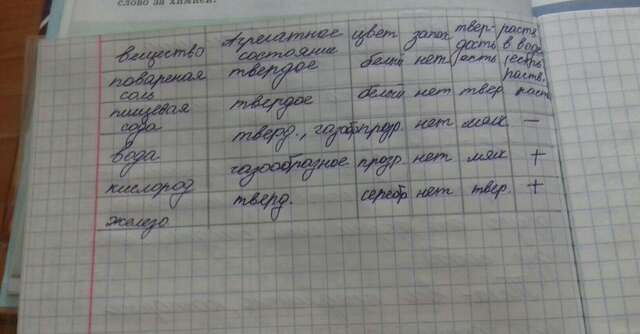 слово за химией.
вещество Агрегатное состояние цвет запах твер-дость раств. в воде
повареная соль твердое белый нет есть есть раств.
пищевая сода твердое белый нет твер раств
вода тверд., газообр прозр. нет мягк. —
кислород газообразное прозр. нет мягк +
железо тверд. серебр нет твер. +